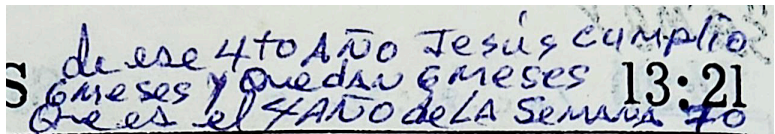 de ese 4to AÑO Jesús cumplio
6 meses y quedan 6 meses 13:21
Que es el 4 AÑO de LA Semana 70